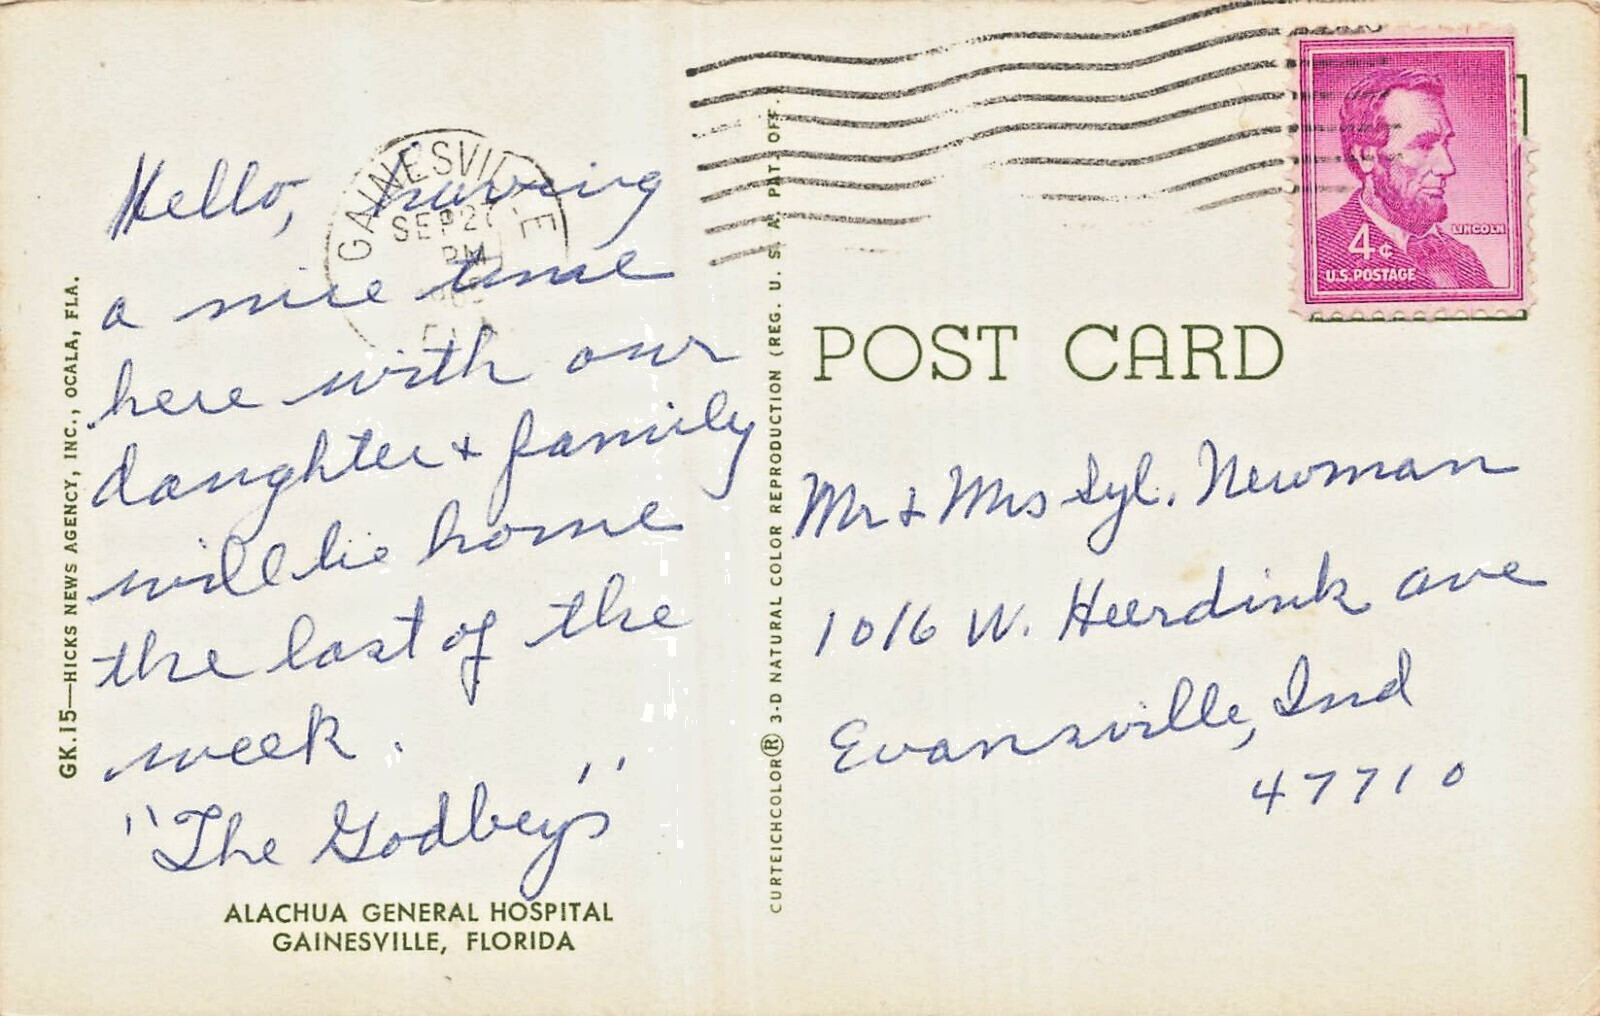 Hello, having
a nice time
here with our
daughter + family
will be home
the last of the
week.
"The Godbey's"
ALACHUA GENERAL HOSPITAL
GAINESVILLE, FLORIDA
GK.15—HICKS NEWS AGENCY, INC., OCALA, FLA.
GAINESVILLE
SEP
PM
FLA
CURTEICHCOLOR® 3-D NATURAL COLOR REPRODUCTION (REG. U. S. A. PAT. OFF.
LINCOLN
4¢
U.S. POSTAGE
POST CARD
Mr & Mrs Syl. Newman
1016 W. Heerdink ave
Evansville, Ind
47710